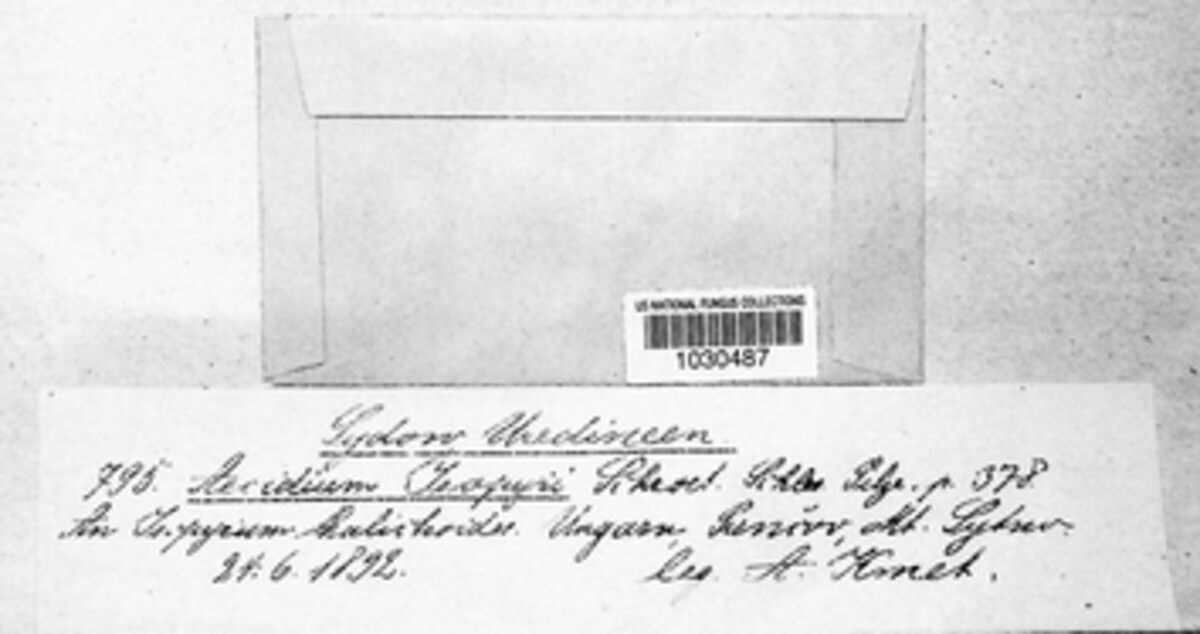 US NATIONAL FUNGUS COLLECTIONS
1030487
Sydow Uredineen
795. Aecidium Isopyri Schroet. Schles Pilze. p. 378
An Isopyrum thalictroides. Ungarn, Prenčov, Mt. Sytno.
24. 6. 1892. leg. A. Kmet.